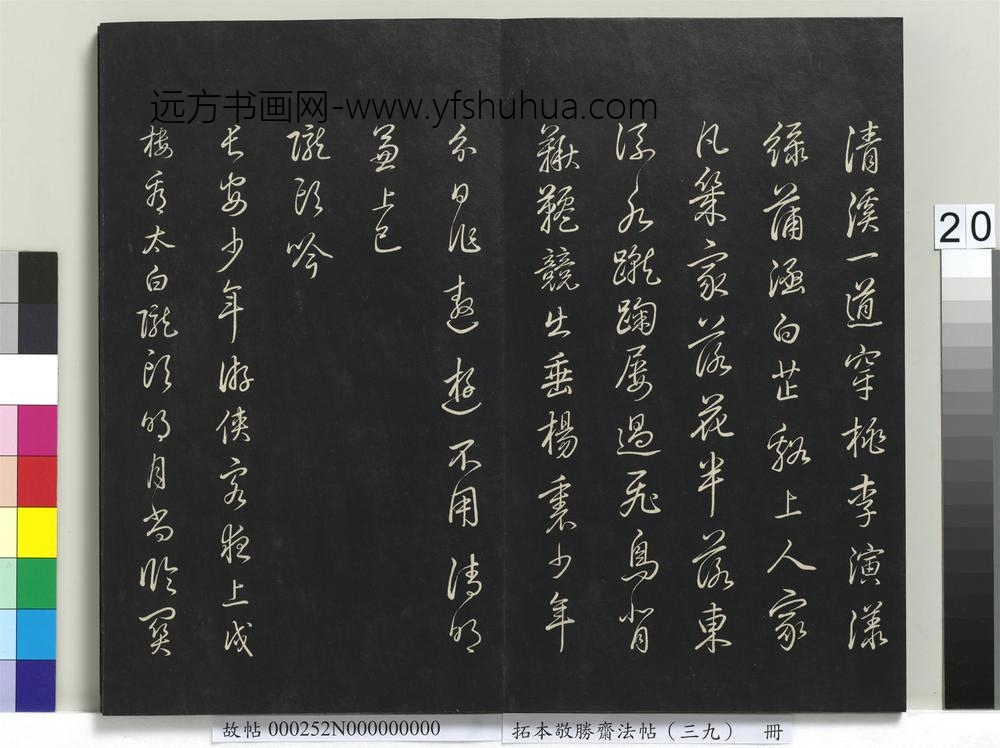 远方书画网-www.yfshuhua.com
清溪一道穿桃李演漾
綠蒲涵白芷谿上人家
凡幾家落花半落東
流水蹴踘屢過飛鳥上
鞦韆競出垂楊裏少年
分日作遨遊不用清明
兼上巳
隴頭吟
長安少年游俠客夜上戍
樓看太白隴頭明月迥臨關
20
故帖 000252N000000000
拓本敬勝齋法帖（三九） 冊